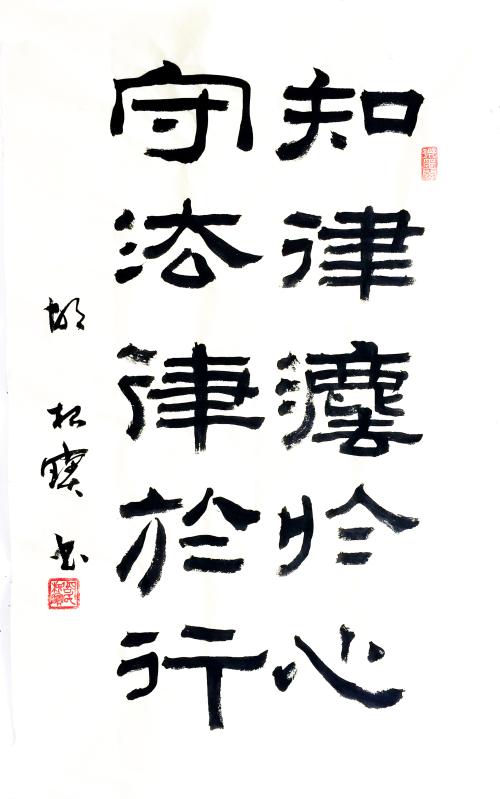 知律灋於心
守法律於行
胡松寶书